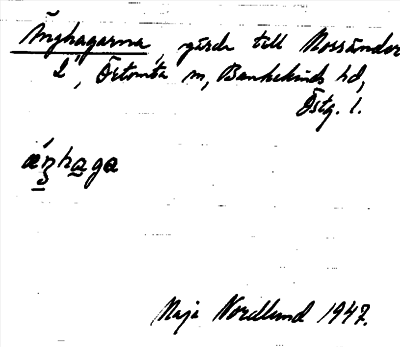 Änghagarna, gärde till Mossänder
2, Örtomta sn, Bankekinds hd,
Östg. l.
ǽŋhaga
Maja Nordlund 1947.